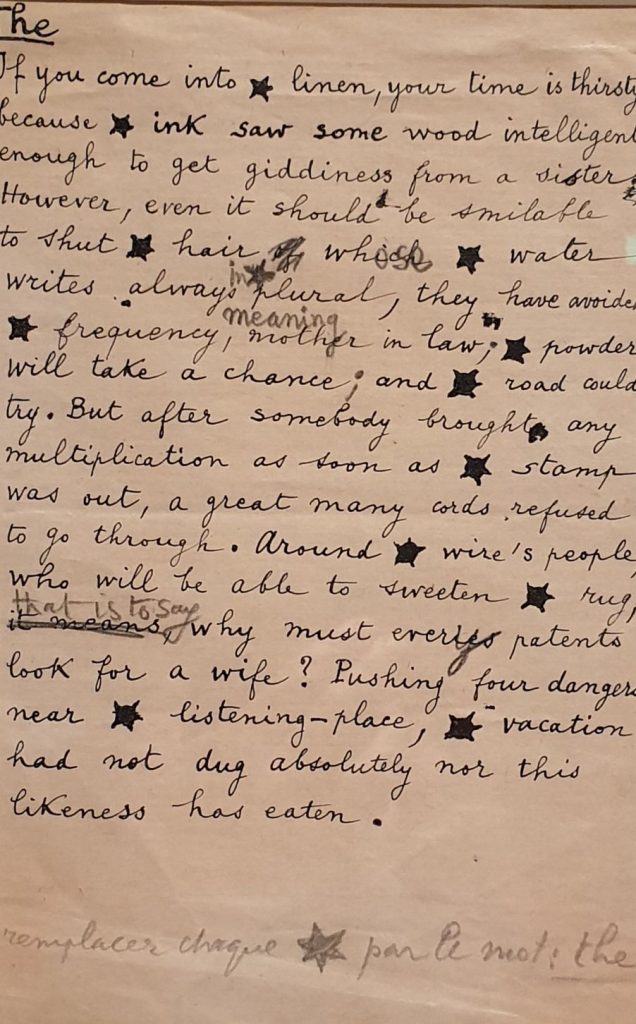 The
If you come into ★ linen, your time is thirsty
because ★ ink saw some wood intelligent
enough to get giddiness from a sister.
However, even it should be smilable
to shut ★ hair which ★ water
writes always plural, they have avoided
in ★
meaning
★ frequency, mother in law; ★ powder
will take a chance; and ★ road could
try. But after somebody brought any
multiplication as soon as ★ stamp
was out, a great many cords refused
to go through. Around ★ wire's people,
who will be able to sweeten ★ rug,
that is to say
it means, why must every patents
look for a wife? Pushing four dangers
near ★ listening-place, ★ vacation
had not dug absolutely nor this
likeness has eaten.
remplacer chaque ★ par le mot: the